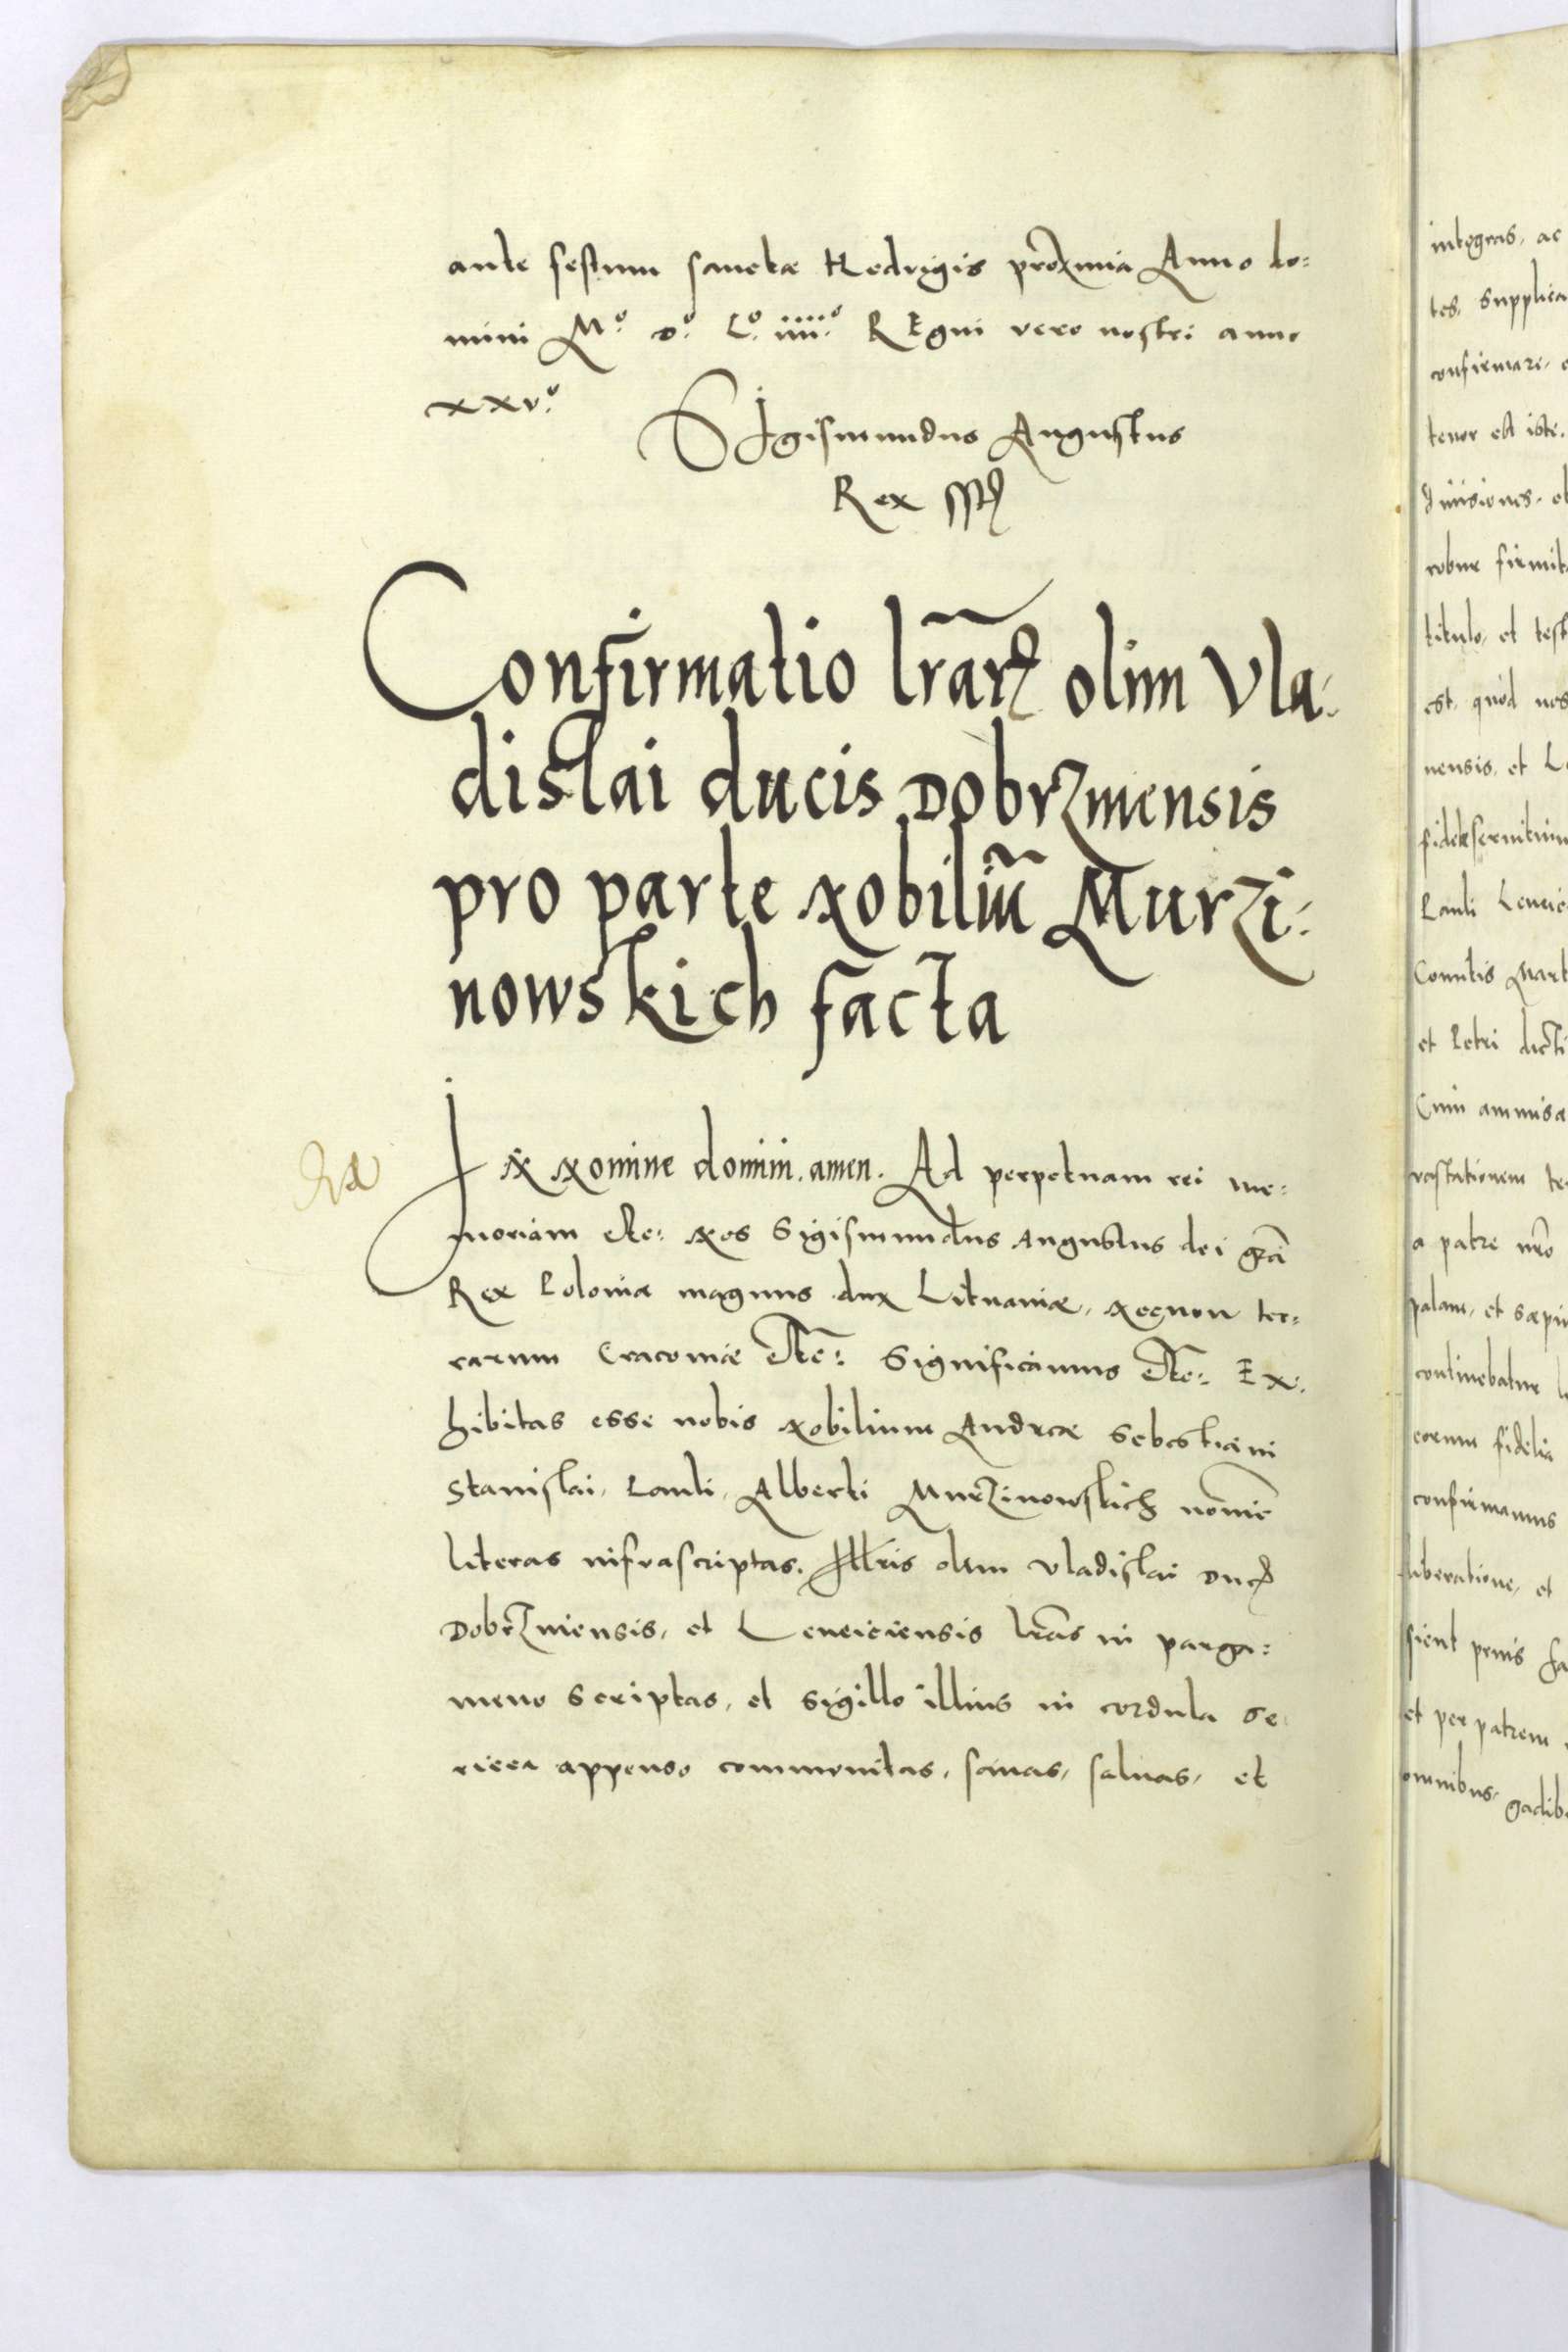 ante festum sanctæ Hedvigis proxima Anno do:
mini Mº. Dº. Lº. iiiiº. REgni vero nostri anno
xxvº.
SIgismundus Augustus
Rex sst
Confirmatio lrar̃ olim Vla:
dislai ducis Dobrzinensis
pro parte Nobiliũ Murzi:
nowskich facta
IN Nomine domini. amen. Ad perpetuam rei me:
moriam etc: Nos Sigismundus Augustus dei grã
Rex Poloniæ magnus dux Lituaniæ, Necnon ter:
rarum Cracoviæ etc: Significamus etc: Ex:
hibitas esse nobis Nobilium Andreæ Sebastiani
Stanislai, Pauli, Alberti Murzinowskich nomine
literas infrascriptas. Illris olim Vladislai Duc
Dobrzinensis, et Lenciciensis lrãs in parga:
meno scriptas, et sigillo illius in cordula se
ricea appenso communitas, sanas, salvas, et
integras, ac
tes, supplica
confirmare,
tenor est iste.
divisiones,
robur firmit
titulo, et test
est, quod nos
nensis, et L
fidele servitium
Pauli Lencic
Comitis Mart
et Petri dicti
Cum ammissa
vastationem te
a patre nrõ
palam, et sæpiu
continebatur l
eorum fidelia
confirmamus
liberatione, et
sicut prius fa
et per patrem
omnibus,